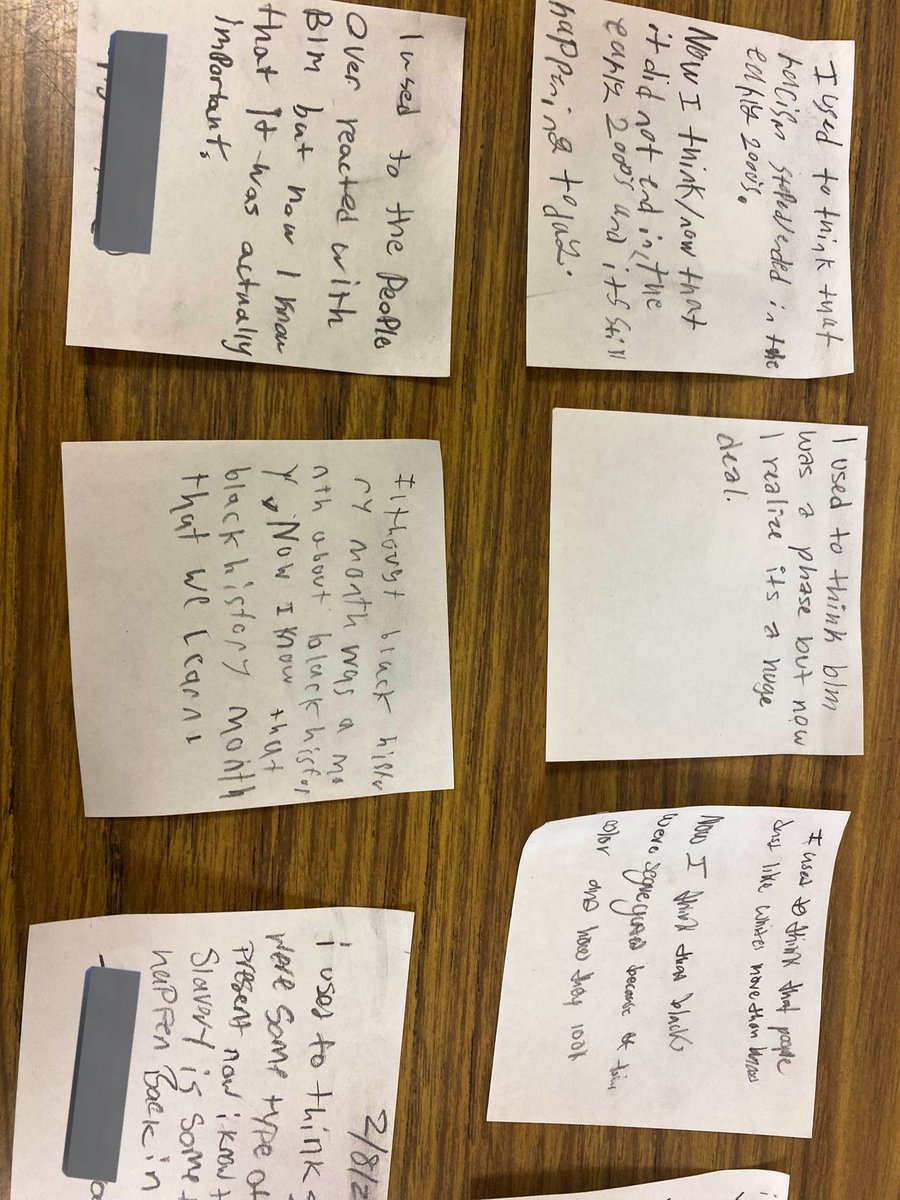 I used to think that
racism ended in the
early 2000's.
Now I think/now that
it did not end in the
early 2000's and its still
happining today.
I used to think blm
was a phase but now
I realize its a huge
deal.
I used to think that people
Just like whites more than
Now I think that blacks
were because of
color and how they look
I used to the People
Over reacted with
Blm but now I know
that It was actually
important.
I thougt black histo
ry month was a mo
nth about black histor
y. Now I know that
black history month
that we learn
2/8/2
i used to think
Were some type of
Present now i know t
Slavery is some t
happen Back in